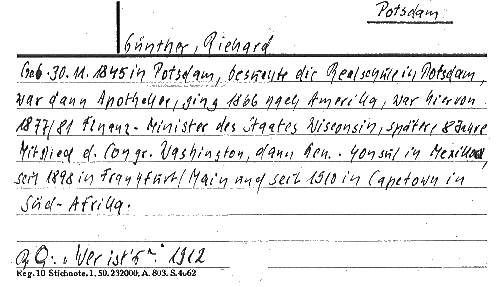 Potsdam
Günther, Richard
Geb. 30.11.1845 in Potsdam, besuchte die Realschule in Potsdam,
war dann Apotheker, ging 1866 nach Amerika, war hiervon
1877/81 Finanz-Minister des Staates Wisconsin, später 8 Jahre
Mitglied d. Congr. Washington, dann Gen.-Konsul in Mexiko,
seit 1898 in Frankfurt/Main und seit 1910 in Capetown in
Süd-Afrika.
QQ: "Wer ist's" 1912
Keg. 10 Stichnote. 1, 50. 232000; A. 803. S. 4062